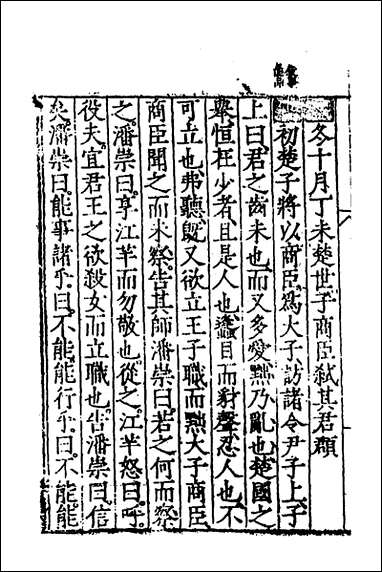 冬十月丁未楚世子商臣弑其君頵
初楚子將以商臣爲大子訪諸令尹子上子
上曰君之齒未也而又多愛黜乃亂也楚國之
舉恒在少者且是人也蠭目而豺聲忍人也不
可立也弗聽旣又欲立王子職而黜大子商臣
商臣聞之而未察告其師潘崇曰若之何而察
之潘崇曰享江羋而勿敬也從之江羋怒曰呼
役夫宜君王之欲殺女而立職也告潘崇曰信
矣潘崇曰能事諸乎曰不能能行乎曰不能能